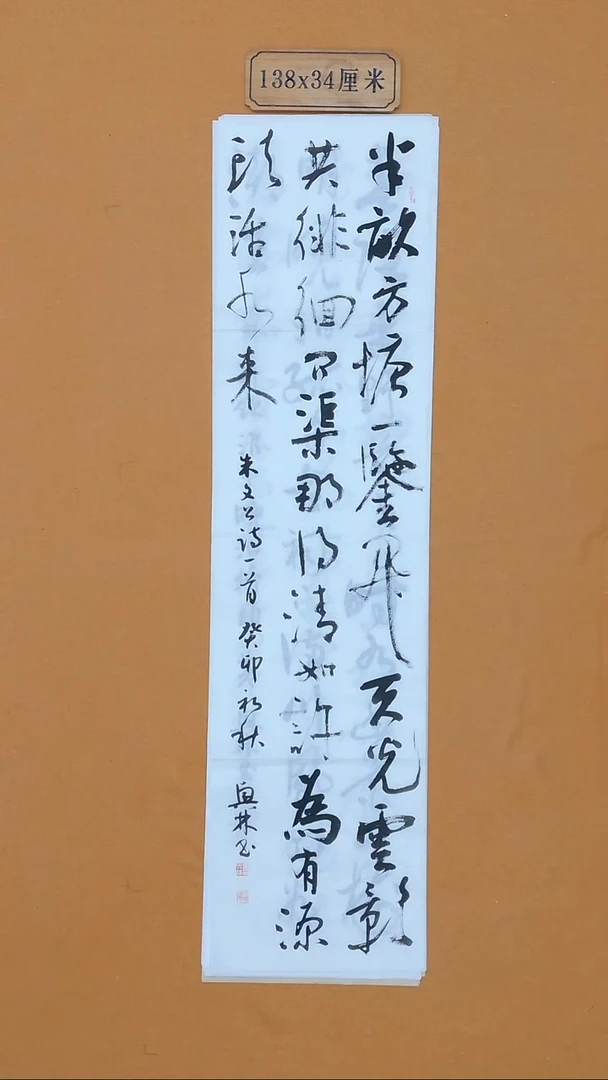 138x34厘米
半畝方塘一鑒开天光雲影
共徘徊问渠那得清如許為有源
頭活水来
朱文公詩一首 癸卯初秋 林书